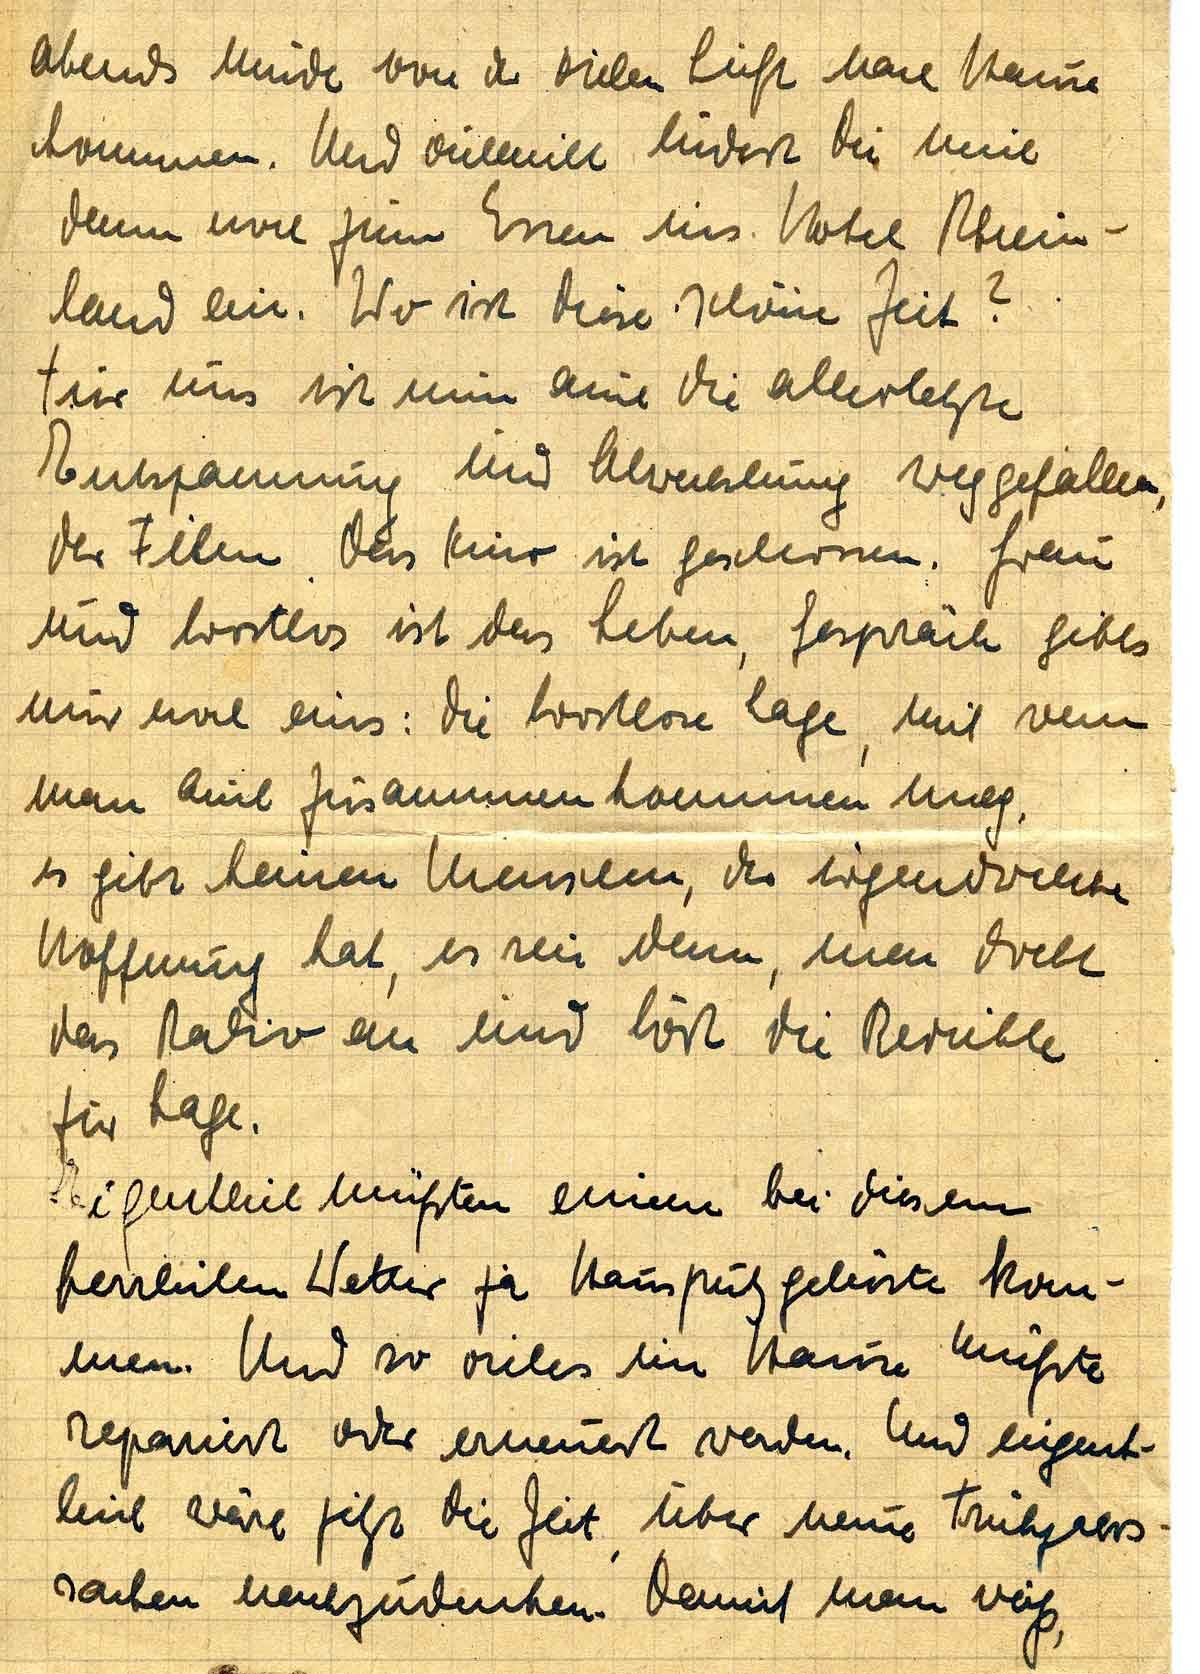 abends müde von der vielen Luft nach Hause
kommen. Und vielleicht lüdest Du mich
dann noch zum Essen ins Hotel Rhein-
land ein. Wo ist diese schöne Zeit?
Für uns ist nun auch die allerletzte
Entspannung und Abwechslung weggefallen,
der Film. Das Kino ist geschlossen. Grau
und trostlos ist das Leben, Gespräch gibts
nur noch eins: die trostlose Lage, mit wem
man auch zusammenkommen mag,
es gibt keinen Menschen, der irgendwelche
Hoffnung hat, es sei denn, man dreht
das Radio an und hört die Berichte
zur Lage.
Eigentlich müßten einem bei diesem
herrlichen Wetter ja Hausputzgelüste kom-
men. Und so vieles im Hause müßte
repariert oder erneuert werden. Und eigent-
lich wäre jetzt die Zeit, über neue Frühjahrs-
sachen nachzudenken. Damit man weiß,